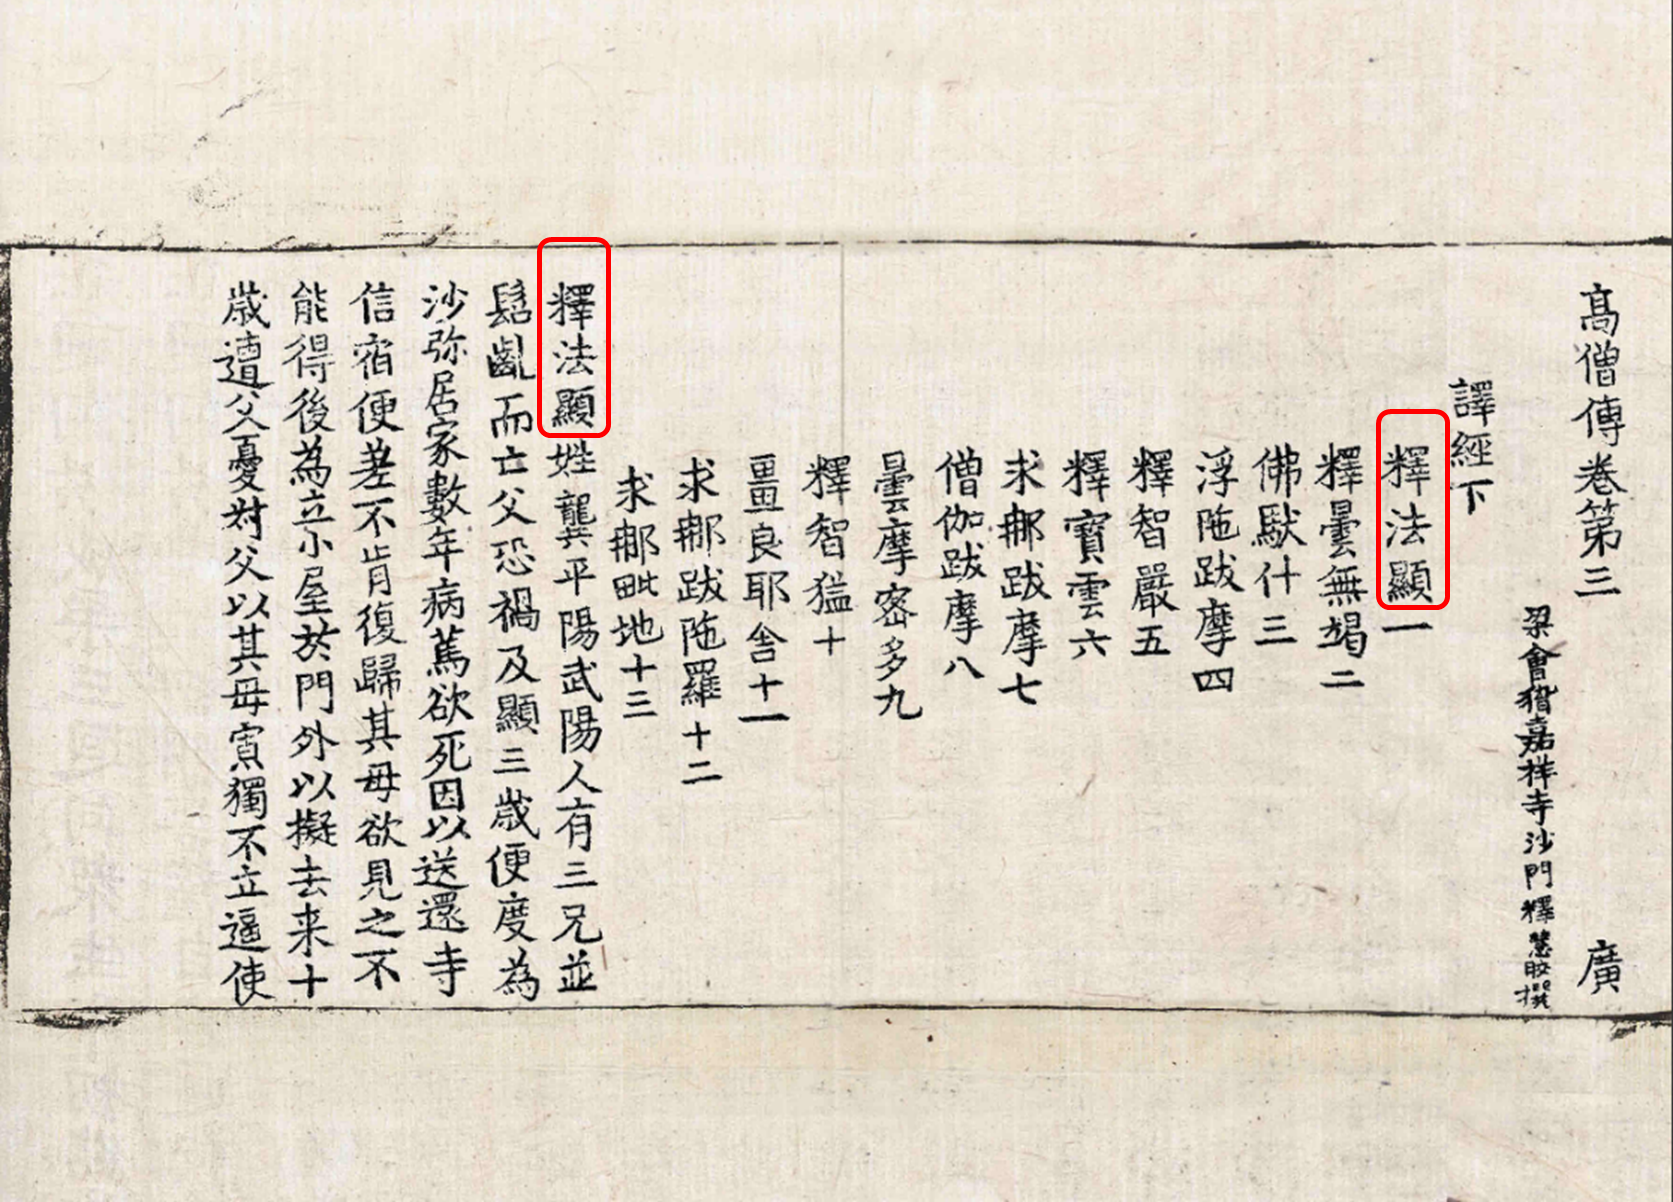 高僧傳卷第三 廣
梁會稽嘉祥寺沙門釋慧皎撰
譯經下
釋法顯一
釋曇無竭二
佛馱什三
浮陁跋摩四
釋智嚴五
釋寶雲六
求那跋摩七
僧伽跋摩八
曇摩密多九
釋智猛十
畺良耶舍十一
求那跋陁羅十二
求那毗地十三
釋法顯姓龔平陽武陽人有三兄並
髫齓而亡父恐禍及顯三歲便度為
沙弥居家數年病篤欲死因以送還寺
信宿便差不肯復歸其母欲見之不
能得後為立小屋於門外以擬去来十
歲遭父憂叔父以其母寡獨不立逼使